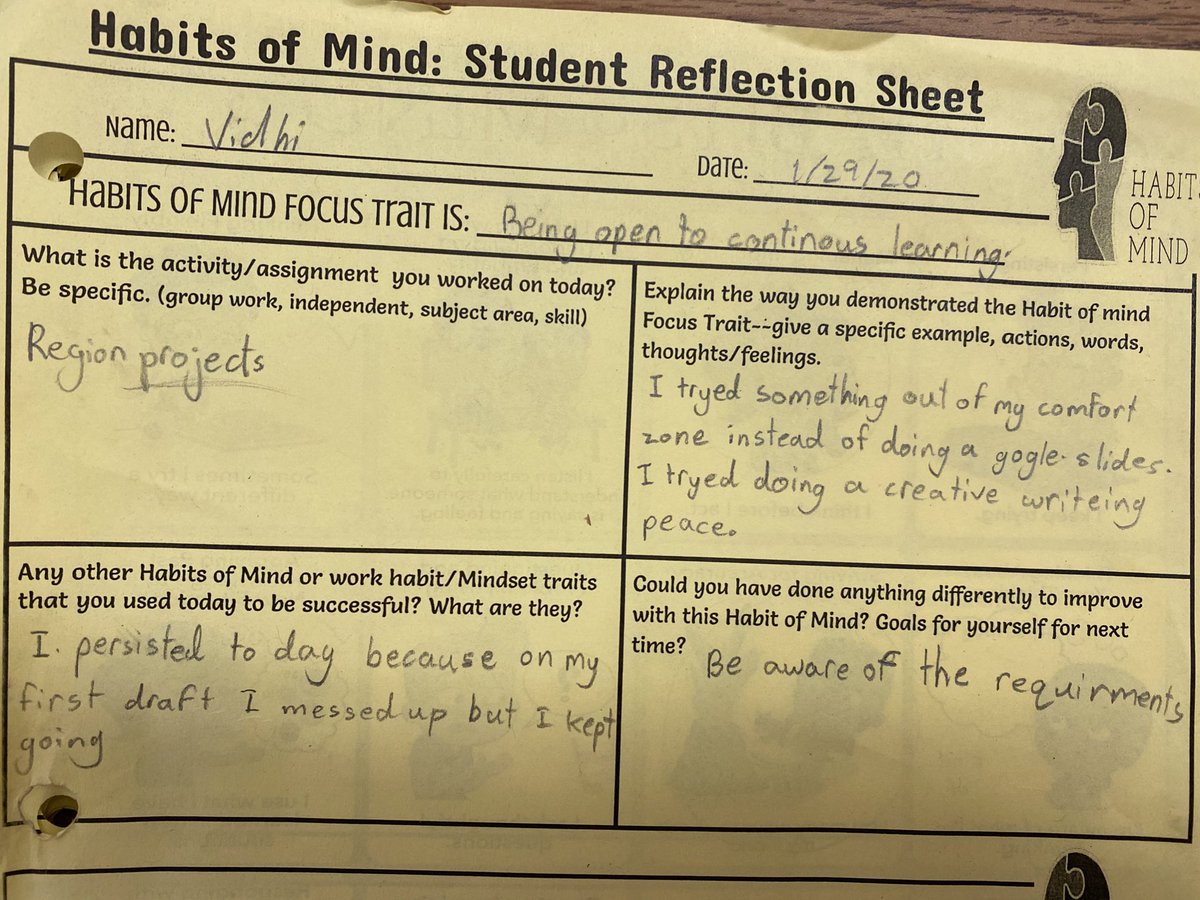 Habits of Mind: Student Reflection Sheet
Name: Vidhi
Date: 1/29/20
HABITS OF MIND
HABITS OF MIND FOCUS TRAIT IS: Being open to continous learning.
What is the activity/assignment you worked on today?
Be specific. (group work, independent, subject area, skill)
Region projects
Explain the way you demonstrated the Habit of mind
Focus Trait--give a specific example, actions, words,
thoughts/feelings.
I tryed something out of my comfort
zone instead of doing a gogle slides.
I tryed doing a creative writeing
peace.
Any other Habits of Mind or work habit/Mindset traits
that you used today to be successful? What are they?
I. persisted to day because on my
first draft I messed up but I kept
going
Could you have done anything differently to improve
with this Habit of Mind? Goals for yourself for next
time?
Be aware of the requirments